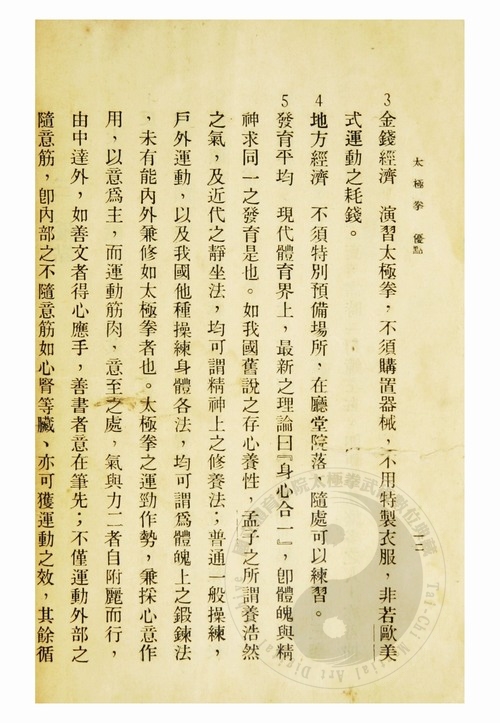 太極拳　優點
一二
3 金錢經濟　演習太極拳，不須購置器械，不用特製衣服，非若歐美
式運動之耗錢。
4 地方經濟　不須特別預備場所，在廳堂院落，隨處可以練習。
5 發育平均　現代體育界上，最新之理論曰『身心合一』，卽體魄與精
神求同一之發育是也。如我國舊說之存心養性，孟子之所謂養浩然
之氣，及近代之靜坐法，均可謂精神上之修養法；普通一般操練，
戶外運動，以及我國他種操練身體各法，均可謂爲體魄上之鍛鍊法
，未有能內外兼修如太極拳者也。太極拳之運勁作勢，兼採心意作
用，以意爲主，而運動筋肉，意至之處，氣與力二者自附麗而行，
由中達外，如善文者得心應手，善書者意在筆先；不僅運動外部之
隨意筋，卽內部之不隨意筋如心腎等臟、亦可獲運動之效，其餘循
Tai-Chi
Martial Art Digital